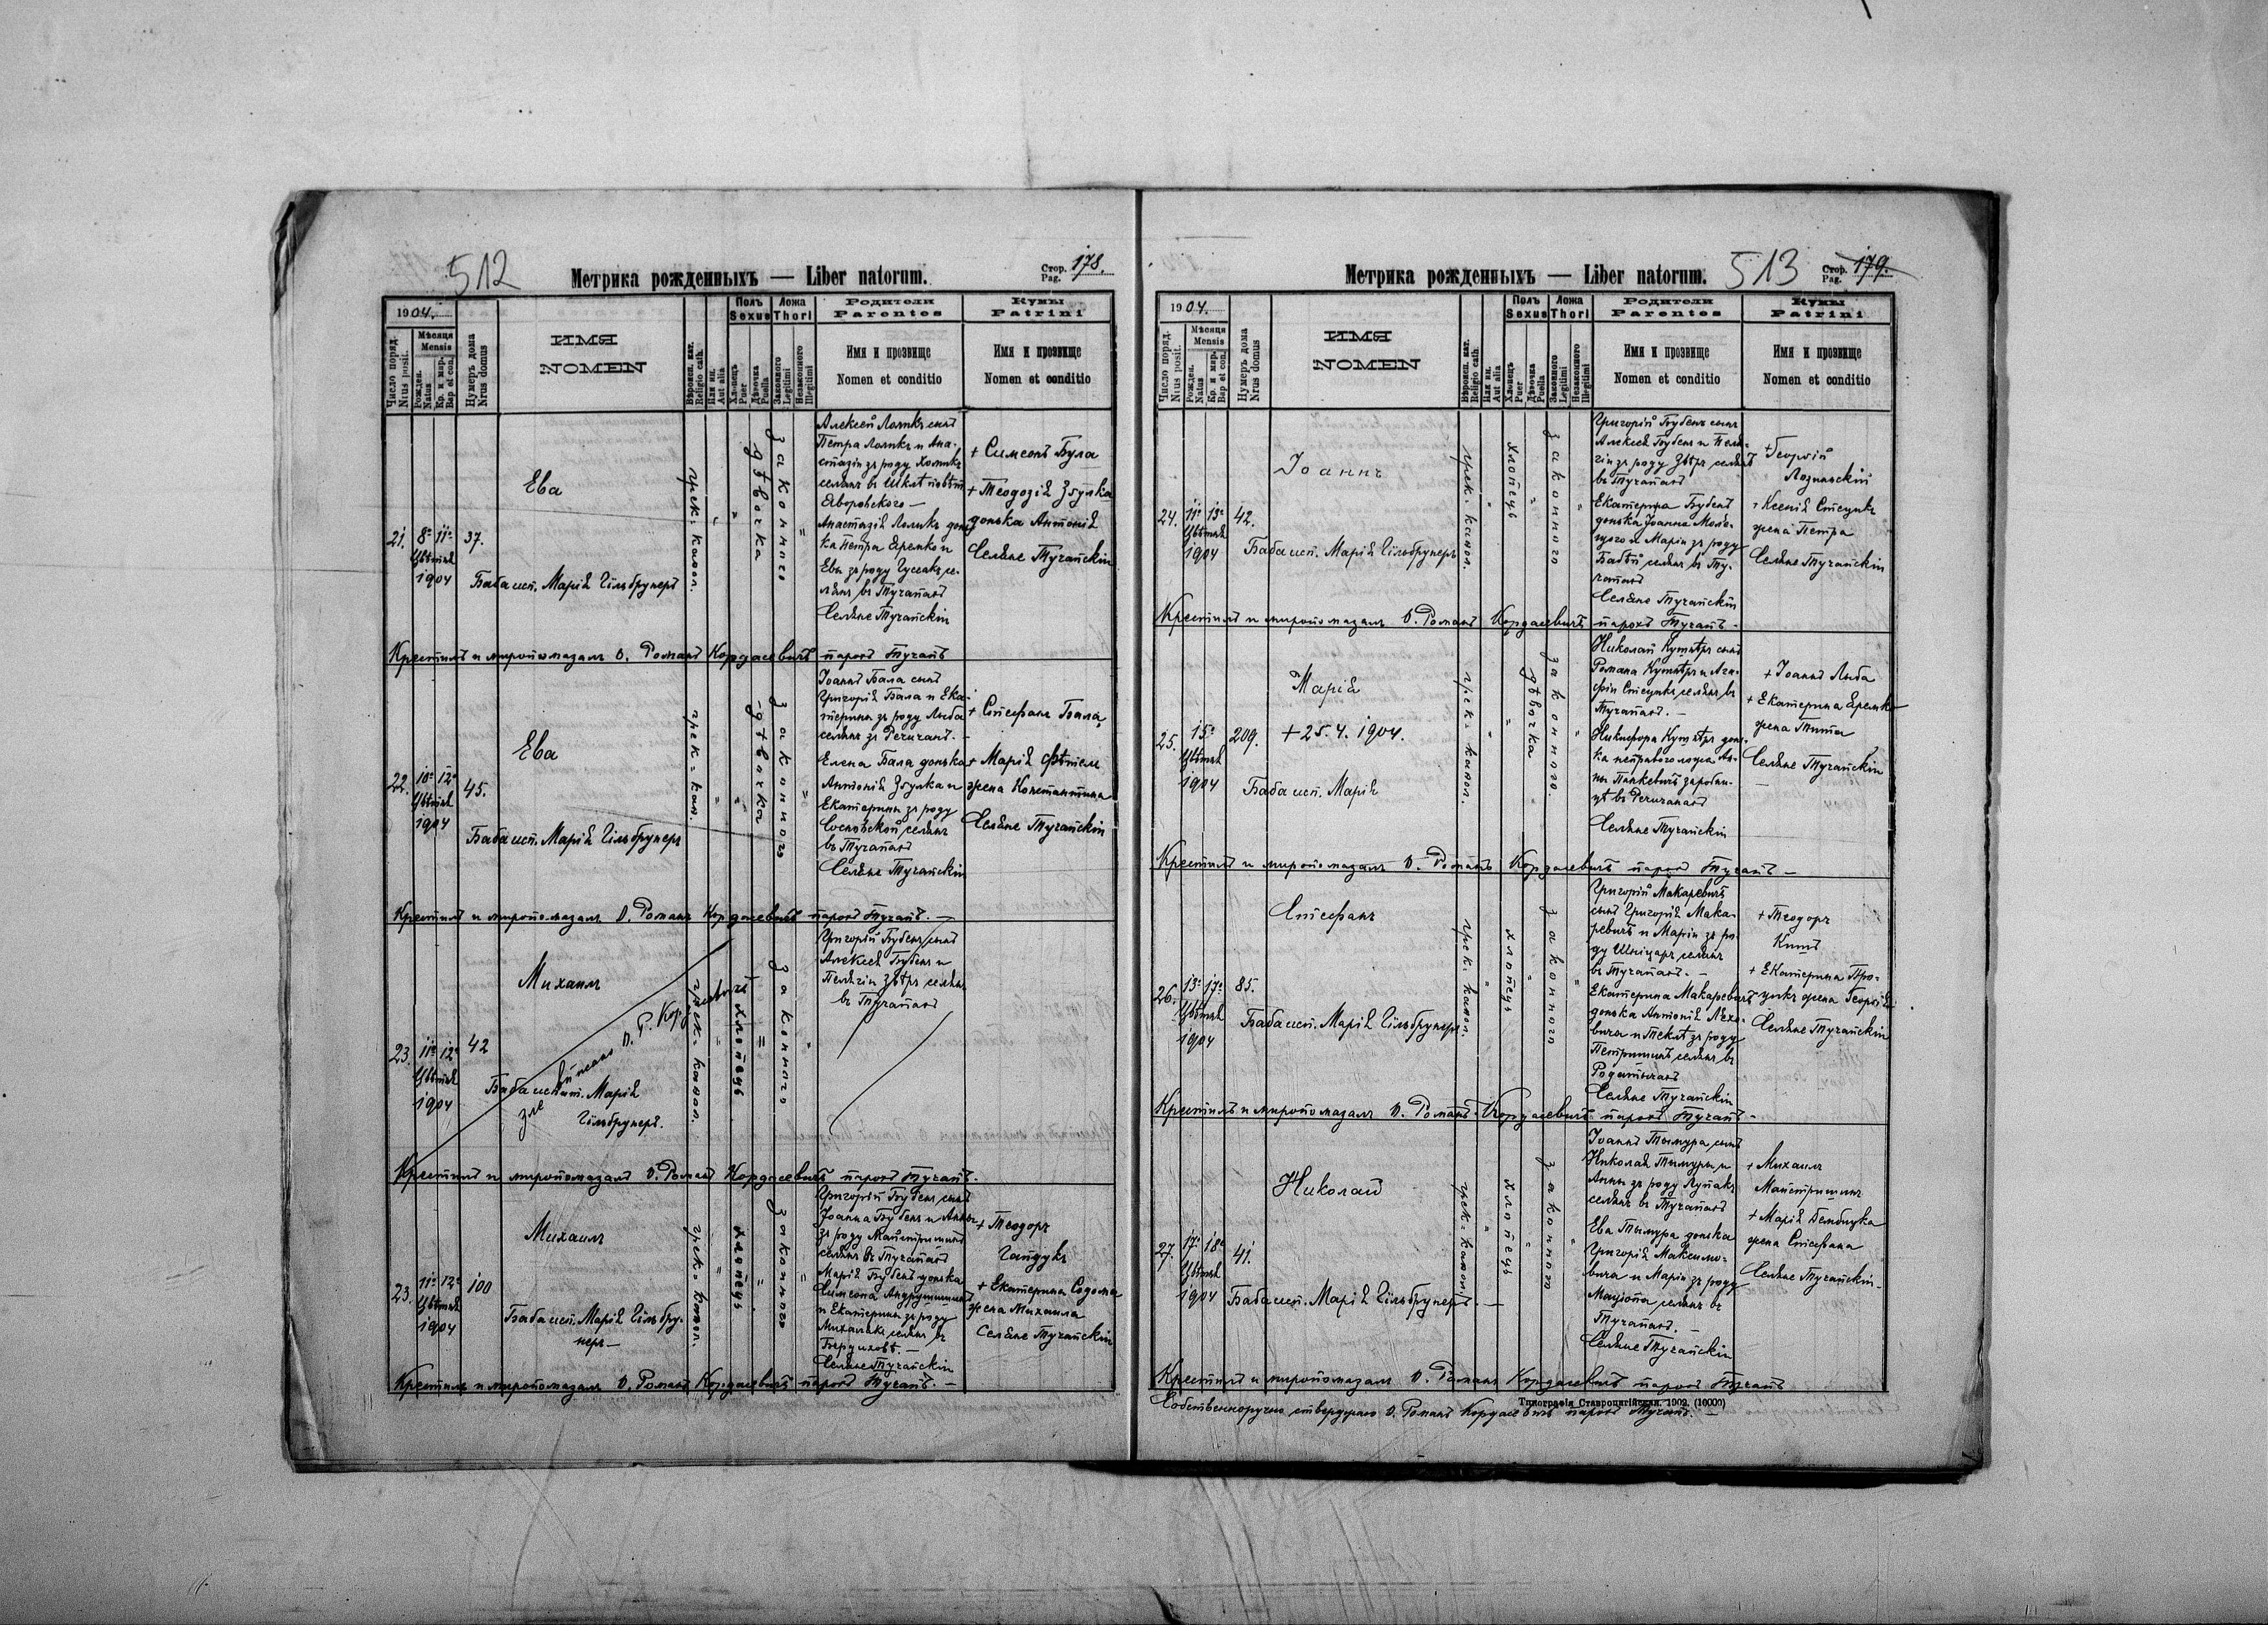 512
Метрика рожденныхъ — Liber natorum.
Стор. Pag. 178.
1904.
Число поряд. Nrus posit.
Мѣсяця Mensis
Рожден. Natus
Кр. и мир. Bap et con.
Нумеръ дома Nrus domus
ИМЯ
NOMEN
Вѣроисп. кат. Religio cath.
Или ин. Aut alia
Полъ Sexus
Хлопець Puer
Дѣвочка Puella
Ложа Thori
Законного Legitimi
Незаконного Illegitimi
Родители
Parentes
Имя и прозвище
Nomen et conditio
Кумы
Patrini
Имя и прозвище
Nomen et conditio
21.
8го 11го
Цвѣтня
1904
37.
Ева
Баба исп. Марія Гільбрунеръ
грек. катол.
дѣвочка
законного
Петра
Анастазія
Ева зъ роду
Селяне Тучапскіи
+ Симеонъ Була
+ Теодозія Збулка
донька Антонія
Селяне Тучапскіи
Крестилъ и миропомазалъ О. Романъ Кордасевичъ парохъ Тучапъ
22.
10го 12го
Цвѣтня
1904
45.
Ева
Баба исп. Марія Гільбрунеръ
грек. кат.
дѣвочка
законного
Іоаннъ Бала сынъ
Григорія Бала и Ека-
терины зъ роду Лыба
селянъ зъ Речичанъ.
Елена Бала донька
Антонія Збулка и
Екатерины зъ роду
Сосновской селянъ
въ Тучапахъ
Селяне Тучапскіи
+ Стефанъ Бала
+ Марія
жена Константина
Селяне Тучапскіи
Крестилъ и миропомазалъ О. Романъ Кордасевичъ парохъ Тучапъ. —
23.
11го 12го
Цвѣтня
1904
42
Михаилъ
зле вписано О. Р. Кордасевичъ
Баба испыт. Марія
Гільбрунеръ.
грек. катол.
хлопець
законного
Григорій Бубенъ сынъ
Алексея Бубенъ и
Пелагіи Звѣръ селянъ
въ Тучапахъ
Крестилъ и миропомазалъ О. Романъ Кордасевичъ парохъ Тучапъ.
23.
11го 12го
Цвѣтня
1904
100
Михаилъ
Баба исп. Марія Гільбру-
неръ —
грек. катол.
хлопець
законного
Григорій Бубенъ сынъ
Іоанна Бубенъ и Анны
зъ роду Майстришинъ
селянъ въ Тучапахъ
Марія Бубенъ донька
Симеона Андрушишинъ
и Екатерины зъ роду
Михалякъ селянъ въ
Селяне Тучапскіи
+ Теодоръ
Гайдукъ
+ Екатерина Содома
жена Михаила
Селяне Тучапскіи
Крестилъ и миропомазалъ О. Романъ Кордасевичъ парохъ Тучапъ. —
Метрика рожденныхъ — Liber natorum.
513
Стор. Pag. 179.
1904.
Число поряд. Nrus posit.
Мѣсяця Mensis
Рожден. Natus
Кр. и мир. Bap et con.
Нумеръ дома Nrus domus
ИМЯ
NOMEN
Вѣроисп. кат. Religio cath.
Или ин. Aut alia
Полъ Sexus
Хлопець Puer
Дѣвочка Puella
Ложа Thori
Законного Legitimi
Незаконного Illegitimi
Родители
Parentes
Имя и прозвище
Nomen et conditio
Кумы
Patrini
Имя и прозвище
Nomen et conditio
24.
11го 13го
Цвѣтня
1904
42.
Іоаннъ
Баба исп. Марія Гільбрунеръ
грек. катол.
хлопець
законного
Григорій Бубенъ сынъ
Алексея Бубенъ и Пела-
гіи зъ роду Звѣръ селянъ
въ Тучапахъ
Екатерина Бубенъ
донька Іоанна
и Маріи зъ роду
селянъ въ Ту-
чапахъ
Селяне Тучапскіи
+ Георгій
Лозинскій
+ Ксенія Стецукъ
жена Петра
Селяне Тучапскіи
Крестилъ и миропомазалъ О. Романъ Кордасевичъ парохъ Тучапъ —
25.
15го
Цвѣтня
1904
209.
Марія
+ 25. 4. 1904.
Баба исп. Марія
грек. катол.
дѣвочка
законного.
Николай Кушнѣръ сынъ
Романа Кушнѣръ и Ага-
фіи Стецукъ селянъ въ
Тучапахъ. —
Никифора Кушнѣръ донь-
ка неправого ложа Ан-
ны Панкевичъ заробни-
цѣ въ Речичанахъ
Селяне Тучапскіи
+ Іоаннъ Лыба
+ Екатерина Яремко
жена Тита
Селяне Тучапскіи
—
Крестилъ и миропомазалъ О. Романъ Кордасевичъ парохъ Тучапъ —
26.
13го 17го
Цвѣтня
1904
85.
Стефанъ
Баба исп. Марія Гільбрунеръ
грек. катол.
хлопець
законного
Григорій Макаревичъ
сынъ Григорія Мака-
ревичъ и Маріи зъ ро-
ду Шніцаръ селянъ
въ Тучапахъ. —
Екатерина Макаревичъ
донька Антонія Ляхо-
вича и Теклѣ зъ роду
Петришинъ селянъ въ
Родатичахъ
Селяне Тучапскіи
+ Теодоръ
Китъ
+ Екатерина Про-
цикъ жена Георгія
Селяне Тучапскіи
Крестилъ и миропомазалъ О. Романъ Кордасевичъ парохъ Тучапъ —
27.
17го 18го
Цвѣтня
1904
41.
Николай
Баба исп. Марія Гільбрунеръ. —
грек. катол.
хлопець
законного
Іоаннъ Тымура сынъ
Николая Тымуры и
Анны зъ роду Лупакъ
селянъ въ Тучапахъ
Ева Тымура донька
Григорія Максимо-
вича и Маріи зъ роду
Мацюпа селянъ въ
Тучапахъ. —
Селяне Тучапскіи
+ Михаилъ
Майстришинъ
+ Марія Бембицка
жена Стефана
Селяне Тучапскіи —
Крестилъ и миропомазалъ О. Романъ Кордасевичъ парохъ Тучапъ
Типографія Ставропигійская. 1902. (10000)
Собственноручно стверджаю О. Романъ Кордасевичъ парохъ Тучапъ. —